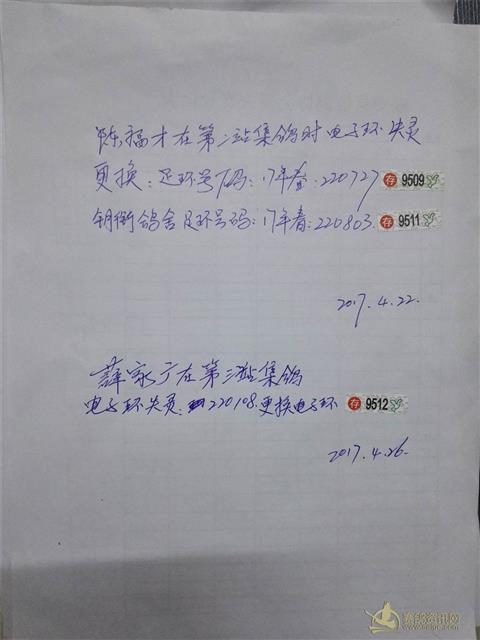 陈福才在第二站集鸽时电子环失灵
更换:足环号码:17年春:220727 存 9509
钥衙鸽舍足环号码:17年春:220803. 存 9511
2017.4.22.
薛家宁在第三站集鸽
电子环失灵:220108.更换电子环 存 9512
2017.4.26.
赛鸽资讯网